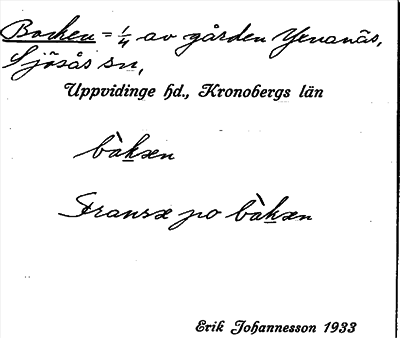 Backen = 1/4 av gården Yenanäs,
Sjösås sn,
Uppvidinge hd., Kronobergs län
bàkæn
Fransæ po bàkæn
Erik Johannesson 1933